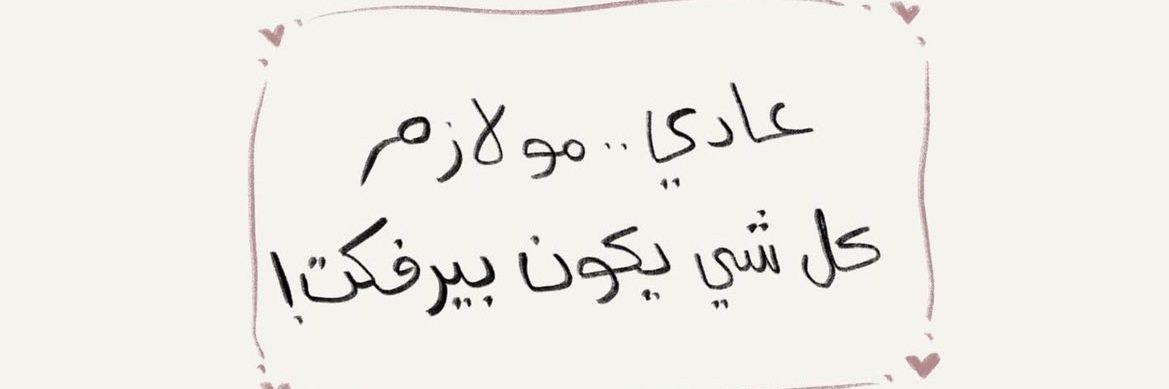 عادي.. مو لازم
كل شي يكون بيرفكت!